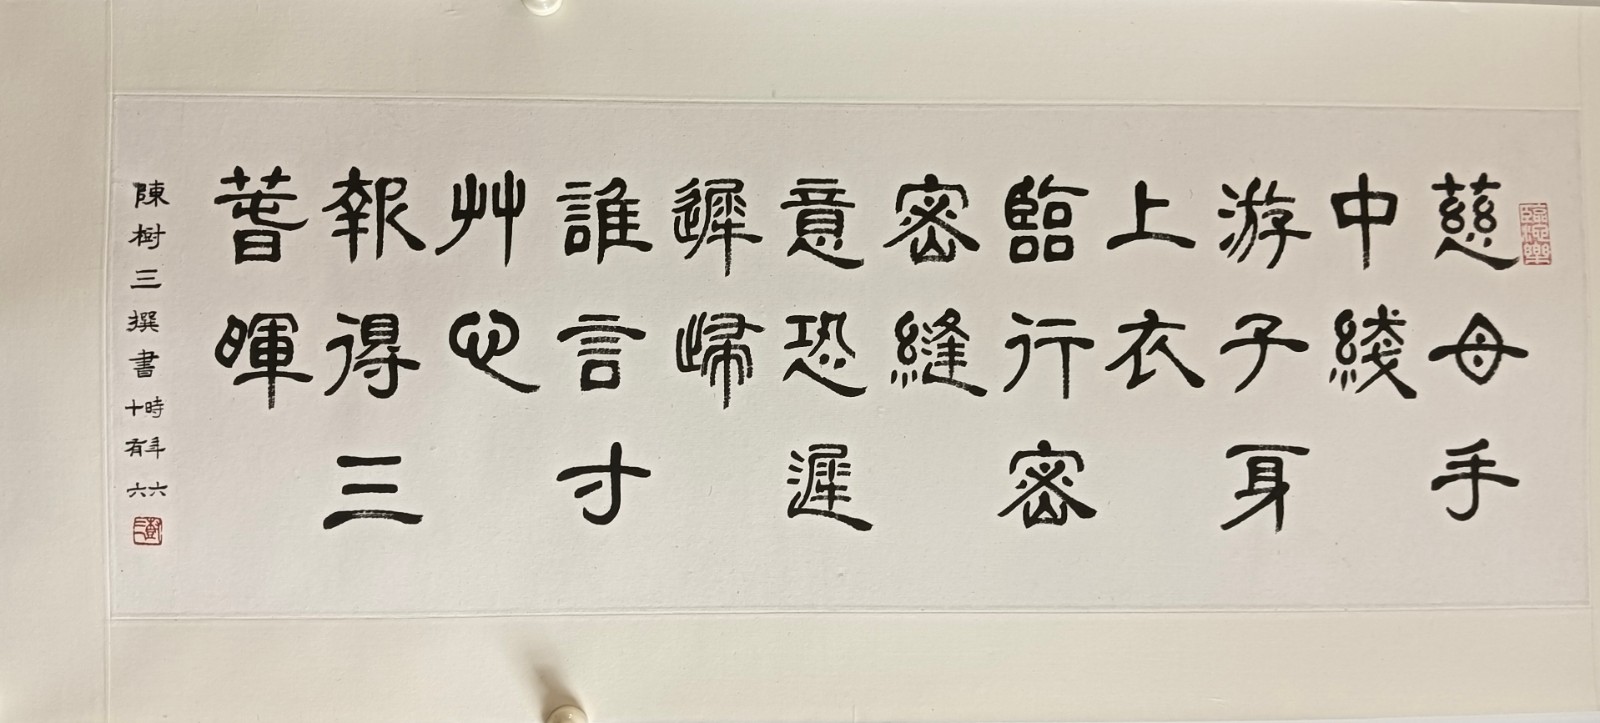 慈母手
中綫
游子身
上衣
臨行密
密縫
意恐遲
遲歸
誰言寸
艸心
報得三
萅暉
陳樹三撰書
時年六
十有六
臨池樂